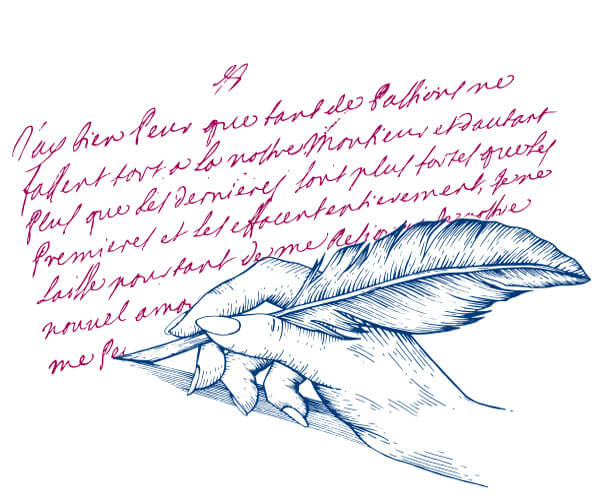 J'ay bien Peur que tant de Passions ne
fassent tort a la nostre Monsieur et dautant
Plus que Les dernieres sont plus fortes que Les
Premieres et Les effacent entierement, Je ne
Laisse pourtant de me de nostre
nouvel amo
me Pe